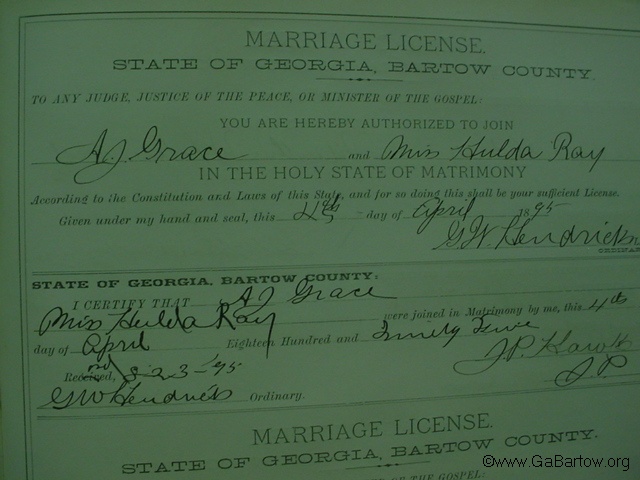 MARRIAGE LICENSE.
STATE OF GEORGIA, BARTOW COUNTY.
TO ANY JUDGE, JUSTICE OF THE PEACE, OR MINISTER OF THE GOSPEL:
YOU ARE HEREBY AUTHORIZED TO JOIN
A.J. Grace and Miss Hulda Ray
IN THE HOLY STATE OF MATRIMONY
According to the Constitution and Laws of this State, and for so doing this shall be your sufficient License.
Given under my hand and seal, this 4th day of April 1895
G.W. Hendricks
ORDINAR
STATE OF GEORGIA, BARTOW COUNTY:
I CERTIFY THAT A J Grace
Miss Hulda Ray were joined in Matrimony by me, this 4th
day of April Eighteen Hundred and Ninety Five
J.P.
Received, 3-95 J.P.
G W Hendricks Ordinary.
MARRIAGE LICENSE.
STATE OF GEORGIA, BARTOW COUNTY.
OF THE GOSPEL:
©www.GaBartow.org